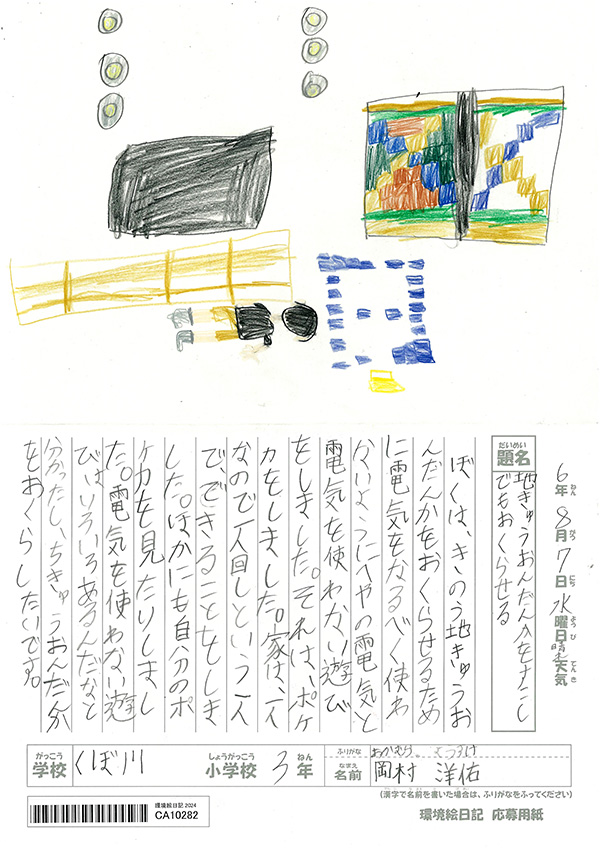 6年ねん 8月がつ 7日にち 水曜日ようび 晴天気てんき
だいめい
題名
地きゅうおんだんかをすこし
でもおくらせる
ぼくは、きのう地きゅうお
んだんかをおくらせるため
に電気をなるべく使わ
ないようにへやの電気と
電気を使わない遊び
をしました。それは、ポケ
カをしました。家は、一人
なので一人回しという一人
で、できることもしま
した。ほかにも自分のポ
ケカを見たりしまし
た。電気を使わない遊
びはいろいろあるんだなと
分かったし、ちきゅうおんだんか
をおくらしたいです。
がっこう しょうがっこう ねん ふりがな おかむら ようすけ
学校 くぼ川 小学校 3年 なまえ 名前 岡村 洋佑
(漢字で名前を書いた場合は、ふりがなをふってください)
環境絵日記 2024
CA10282
環境絵日記 応募用紙